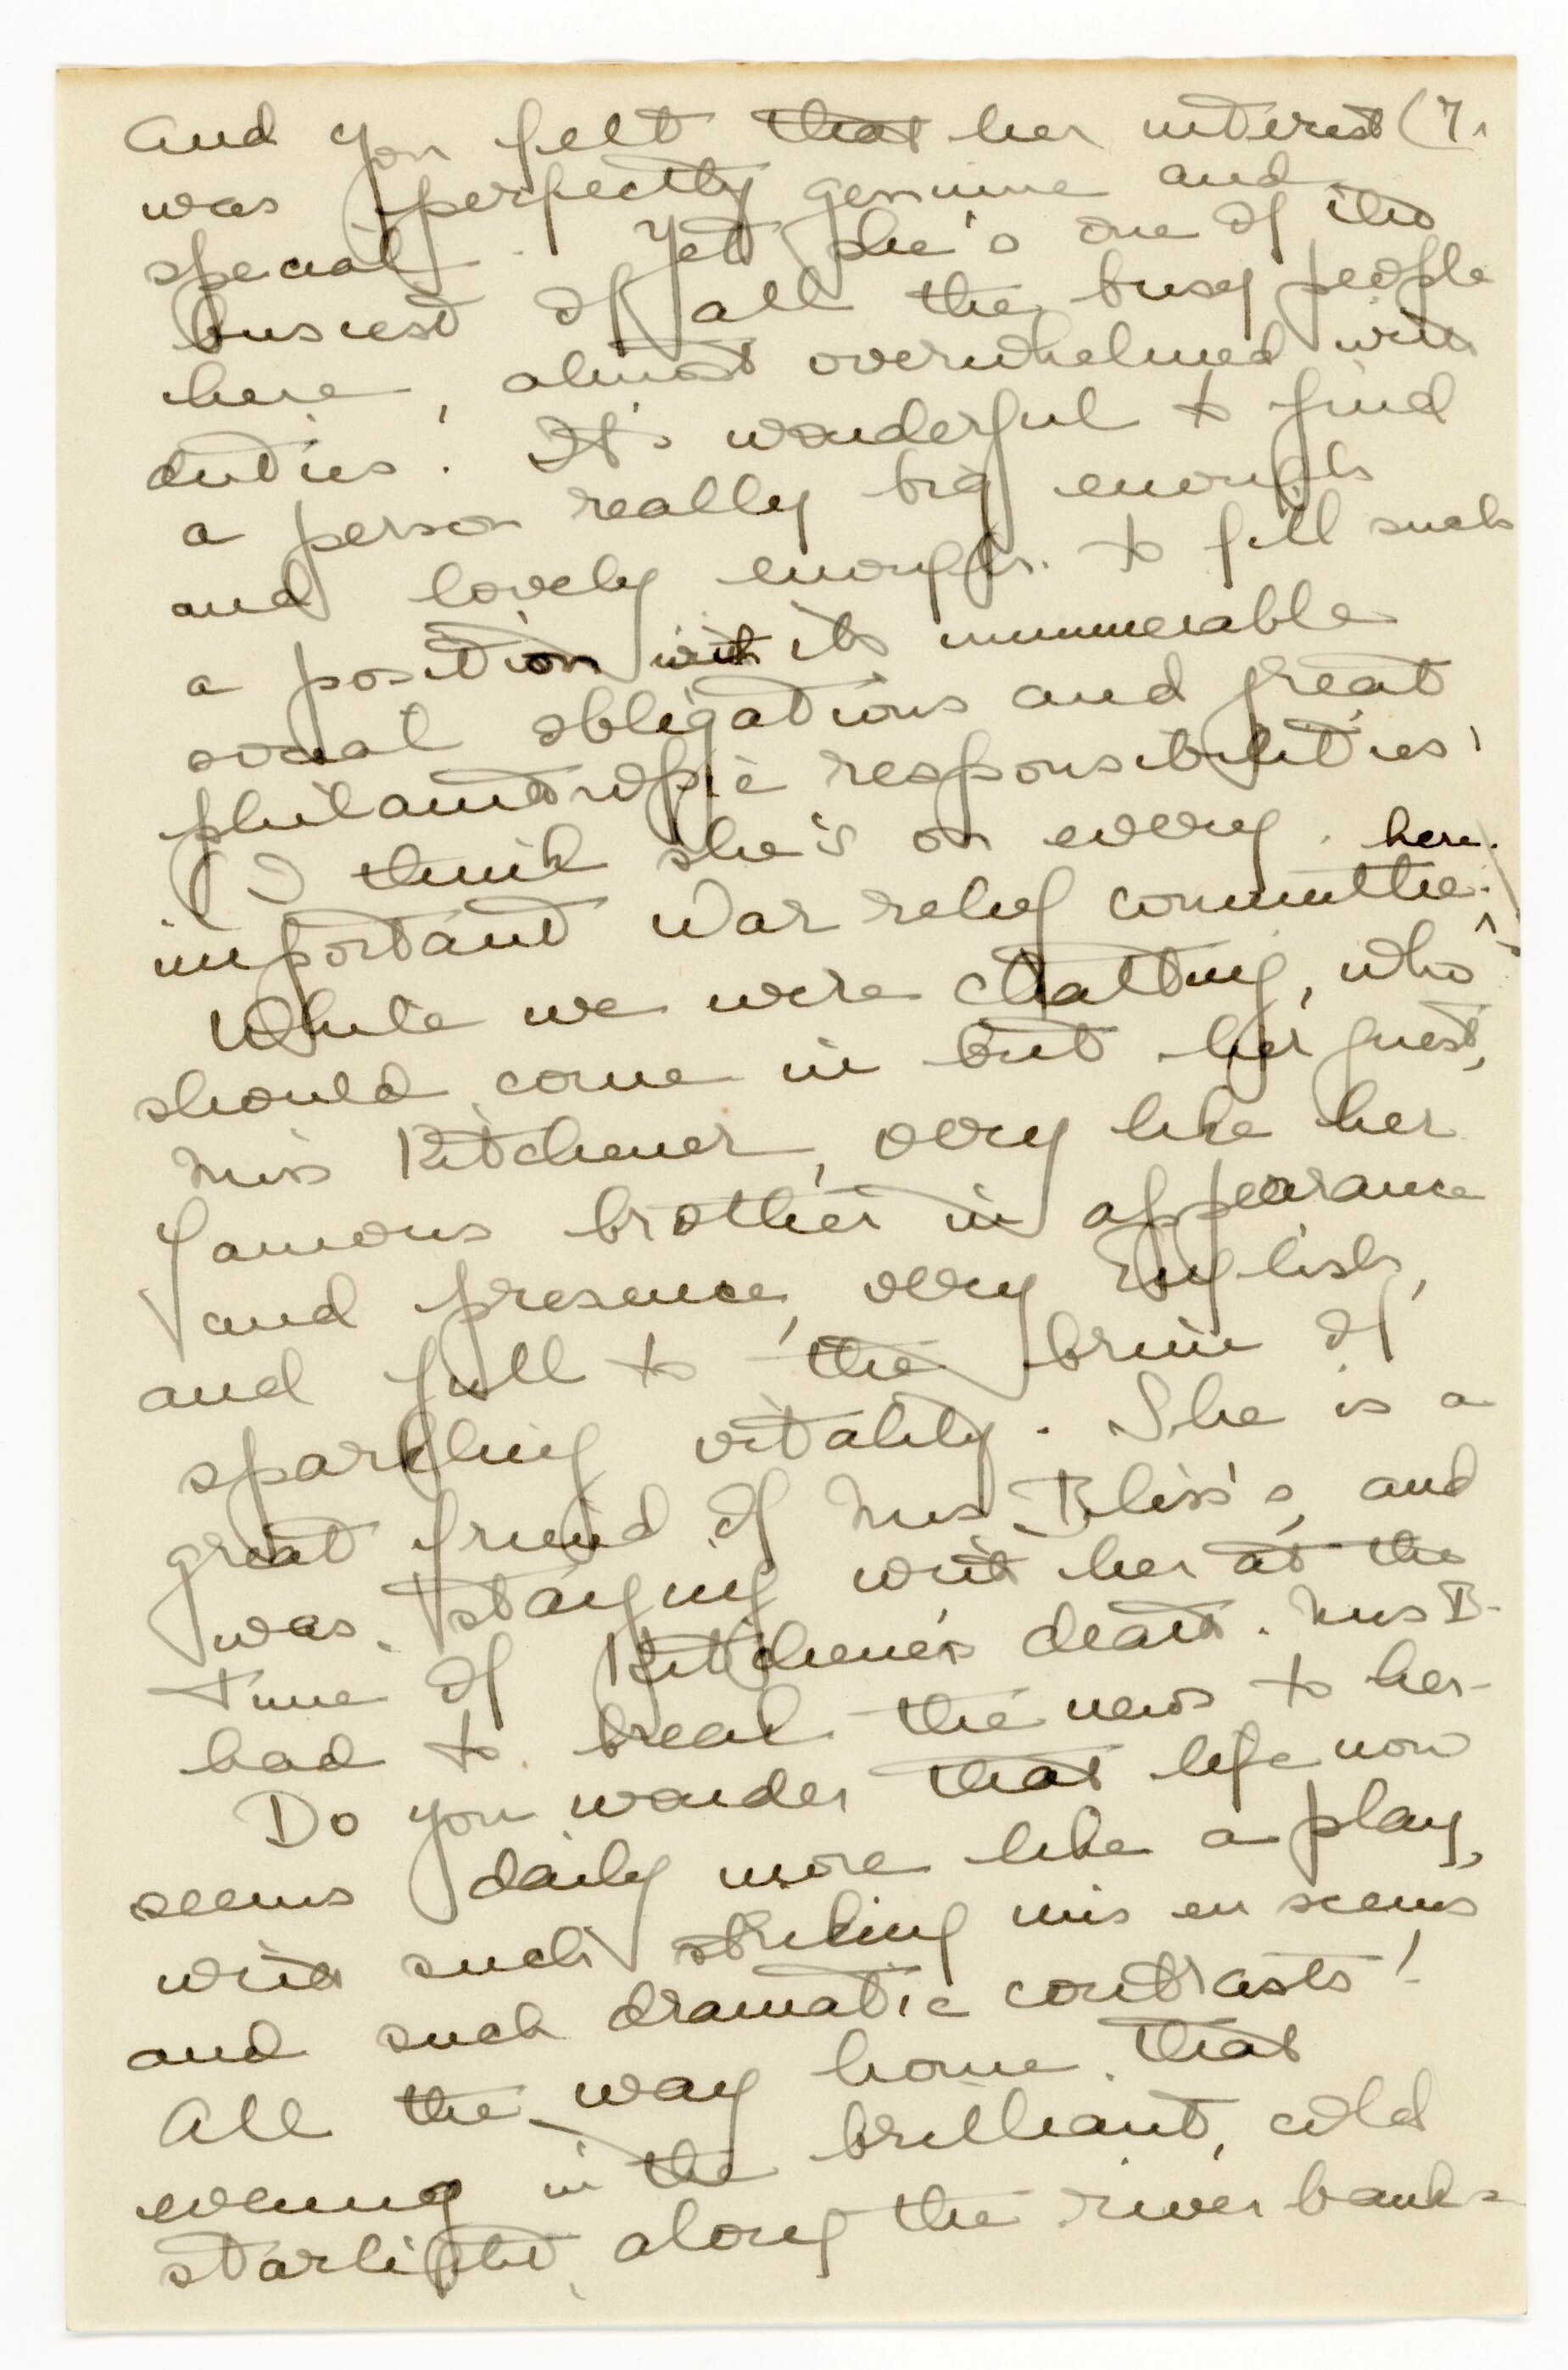 and you felt that her interest (7.
was perfectly genuine and
special. Yet she's one of the
busiest of all the busy people
here, almost overwhelmed with
duties. It's wonderful to find
a person really big enough
and lovely enough to fill such
a position with its innumerable
social obligations and great
philanthropic responsibilities!
(I think she's on every
important War relief committee here.)
While we were chatting, who
should come in but her guest,
Miss Kitchener, very like her
famous brother in appearance
and presence, very English,
and full to the brim of
sparkling vitality. She is a
great friend of Mrs Bliss's, and
was staying with her at the
time of Kitchener's death. Mrs B-
had to break the news to her-
Do you wonder that life now
seems daily more like a play,
with such striking mis en scenes
and such dramatic contrasts!
All the way home that
evening in the brilliant, cold
starlight, along the river banks